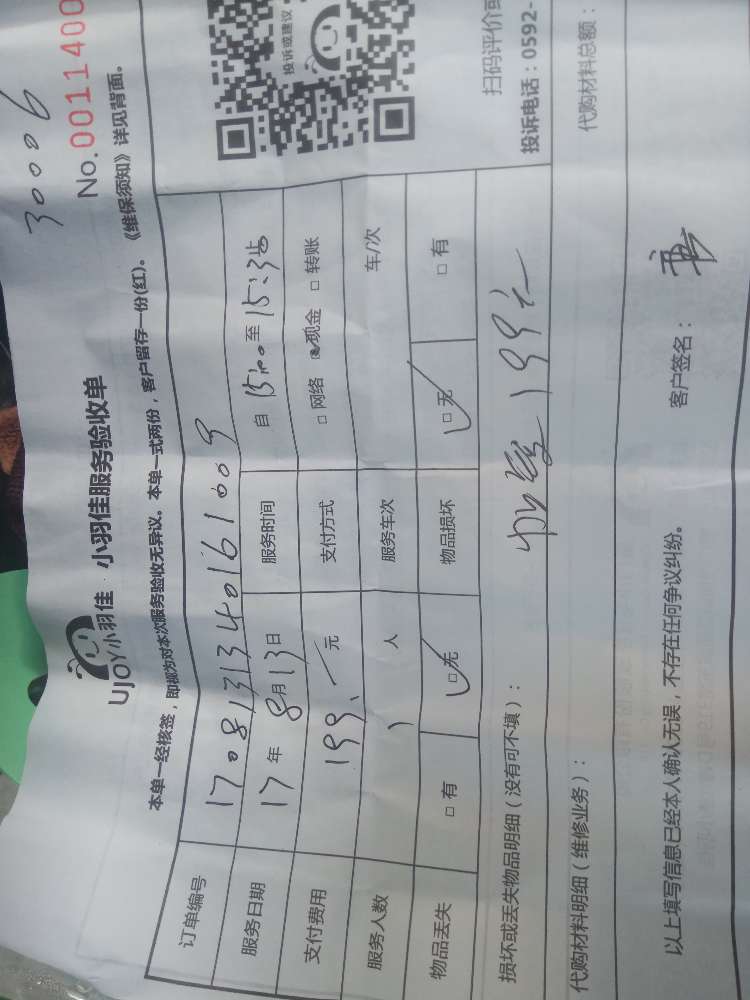 30006
UJOY小羽佳 · 小羽佳服务验收单
No.0011400
本单一经核签，即视为对本次服务验收无异议。本单一式两份，客户留存一份(红)。《维保须知》详见背面。
订单编号 170813134016100９
服务日期 17年8月13日 服务时间 自15:00至15:35
支付费用 199.元 支付方式 □网络 □现金 □转账
服务人数 1人 服务车次 车/次
物品丢失 □有 □无 物品损坏 □无 □有
投诉或建议
扫码评价或
投诉电话：0592-
损坏或丢失物品明细（没有可不填）：
199元
代购材料明细（维修业务）：
代购材料总额：
以上填写信息已经本人确认无误，不存在任何争议纠纷。 客户签名：